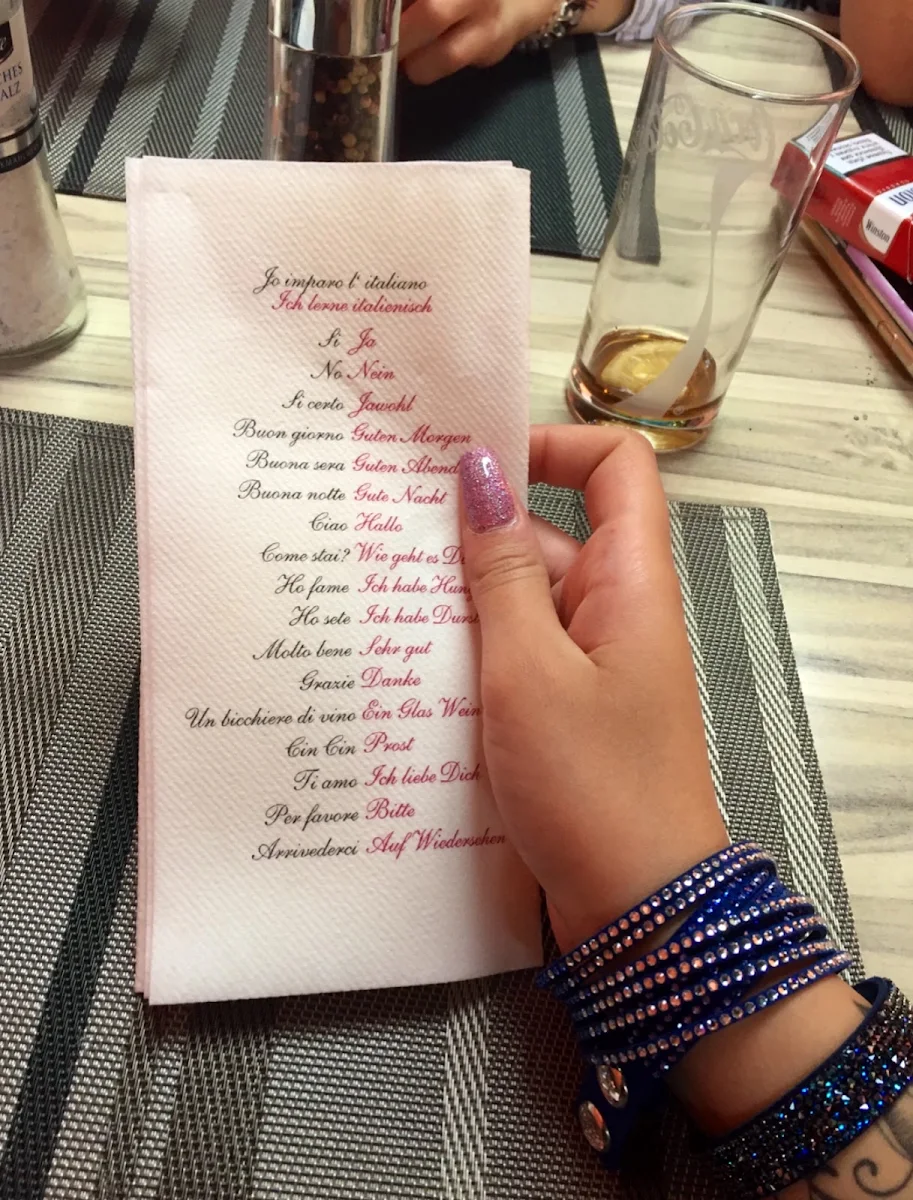 CHES
ALZ
Jo imparo l' italiano
Ich lerne italienisch
Si Ja
No Nein
Si certo Jawohl
Buon giorno Guten Morgen
Buona sera Guten Abend
Buona notte Gute Nacht
Ciao Hallo
Come stai? Wie geht es
Ho fame Ich habe
Ho sete Ich habe Durst
Molto bene Sehr gut
Grazie Danke
Un bicchiere di vino Ein Glas Wein
Cin Cin Prost
Ti amo Ich liebe Dich
Per favore Bitte
Arrivederci Auf Wiedersehen
Winston